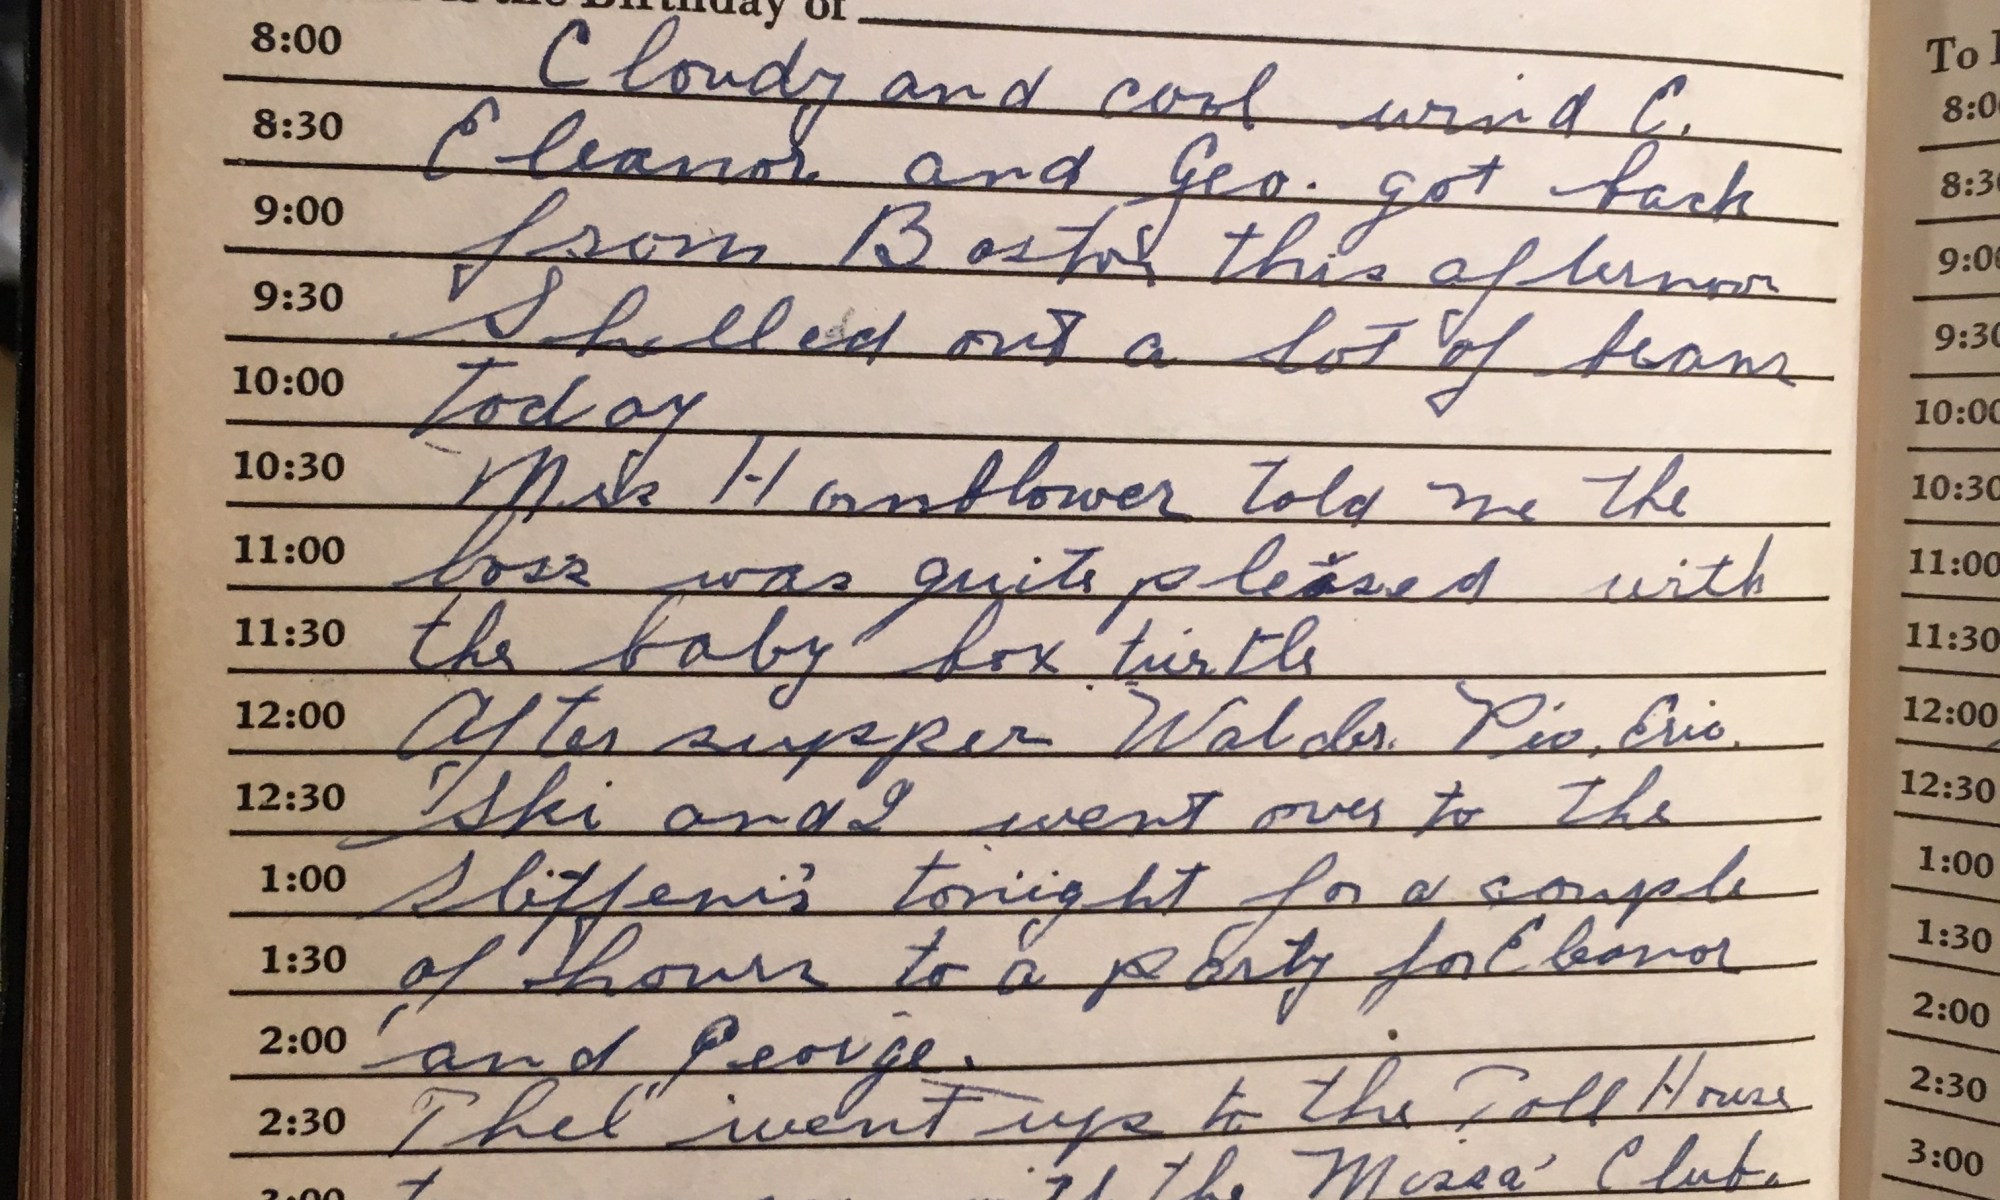 the Birthday of
8:00 Cloudy and cool wind E.
8:30 Eleanor and Geo. got back
9:00 from Boston this afternoon
9:30 Shelled out a lot of beans
10:00 today
10:30 Mrs Hornblower told me the
11:00 boss was quite pleased with
11:30 the baby box turtle
12:00 After supper Walder. Pio, Eric.
12:30 Ski and I went over to the
1:00 tonight for a couple
1:30 of hours to a party for Eleanor
2:00 and George.
2:30 Thel went up to the Toll House
3:00 the Club.
To
8:00
8:30
9:00
9:30
10:00
10:30
11:00
11:30
12:00
12:30
1:00
1:30
2:00
2:30
3:00